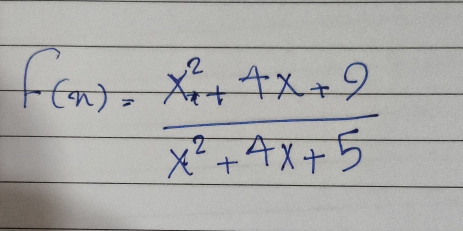 F(x) = x² + 4x + 9
x² + 4x + 5